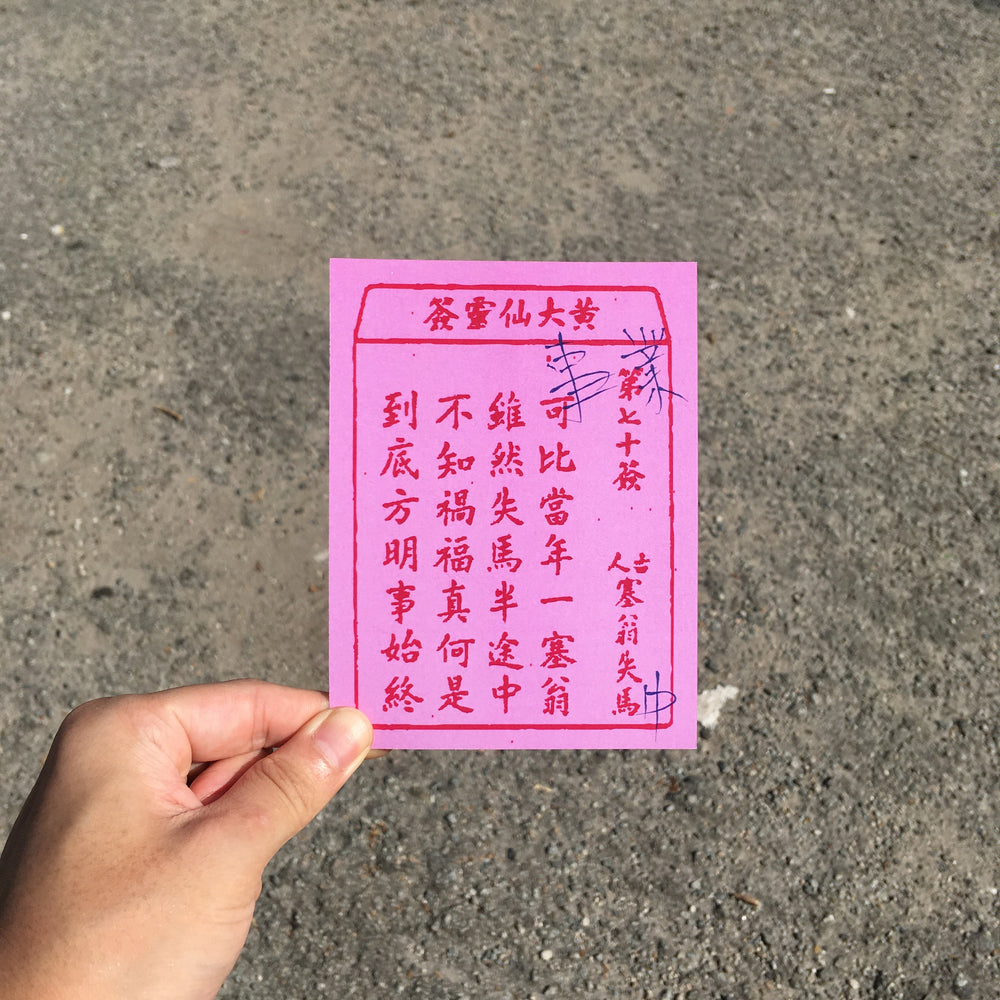 黃大仙靈簽
事業
第七十簽
古人塞翁失馬
中
可比當年一塞翁
雖然失馬半途中
不知禍福真何是
到底方明事始終